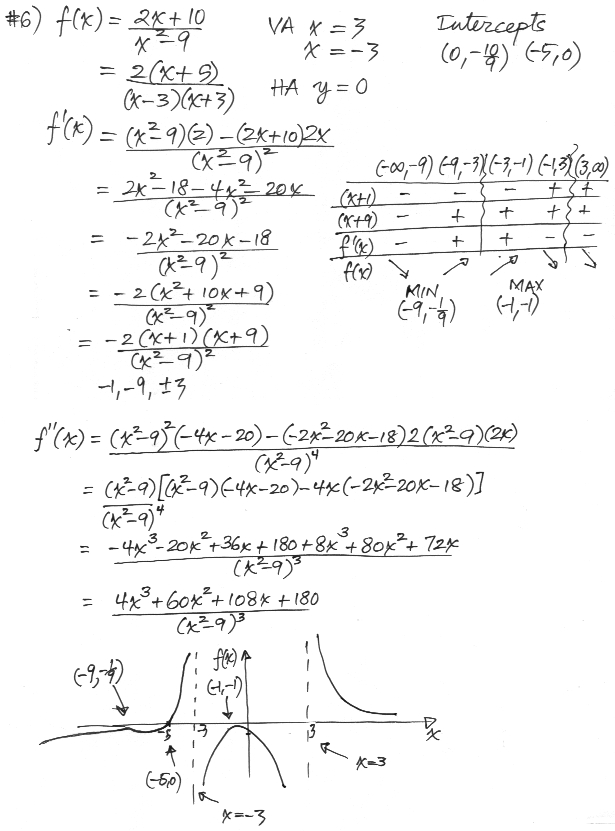 #6) f(x) = (2x + 10)/(x² - 9)    VA x = 3    Intercepts
x = -3    (0, -10/9) (-5, 0)
= 2(x + 5)/((x - 3)(x + 3))    HA y = 0
f'(x) = ((x² - 9)(2) - (2x + 10)2x)/(x² - 9)²
= (2x² - 18 - 4x² - 20x)/(x² - 9)²
= (-2x² - 20x - 18)/(x² - 9)²
= -2(x² + 10x + 9)/(x² - 9)²
= -2(x + 1)(x + 9)/(x² - 9)²
-1, -9, ±3
(-∞, -9) (-9, -3) (-3, -1) (-1, 3) (3, ∞)
(x+1) - - - + +
(x+9) - + + + +
f'(x) - + + - -
f(x) ↘ ↗ ↗ ↘ ↘
MIN MAX
(-9, -1/9) (-1, -1)
f''(x) = ((x² - 9)²(-4x - 20) - (-2x² - 20x - 18)2(x² - 9)(2x))/(x² - 9)⁴
= (x² - 9)[(x² - 9)(-4x - 20) - 4x(-2x² - 20x - 18)]/(x² - 9)⁴
= (-4x³ - 20x² + 36x + 180 + 8x³ + 80x² + 72x)/(x² - 9)³
= (4x³ + 60x² + 108x + 180)/(x² - 9)³
f(x)
(-9, -1/9) (-1, -1)
-5 -3 3 x
(-5, 0) x = 3
x = -3